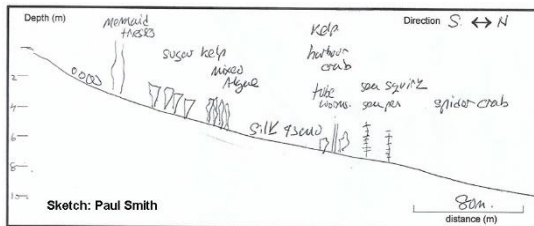 Depth (m)
Direction S ↔ N
mermaid
tresses
sugar kelp
mixed
Algae
kelp
harbour
crab
tube
worms.
sea squirt
sea pen
spider crab
silt & sand
2
4
6
8
10
Sketch: Paul Smith
80m.
distance (m)